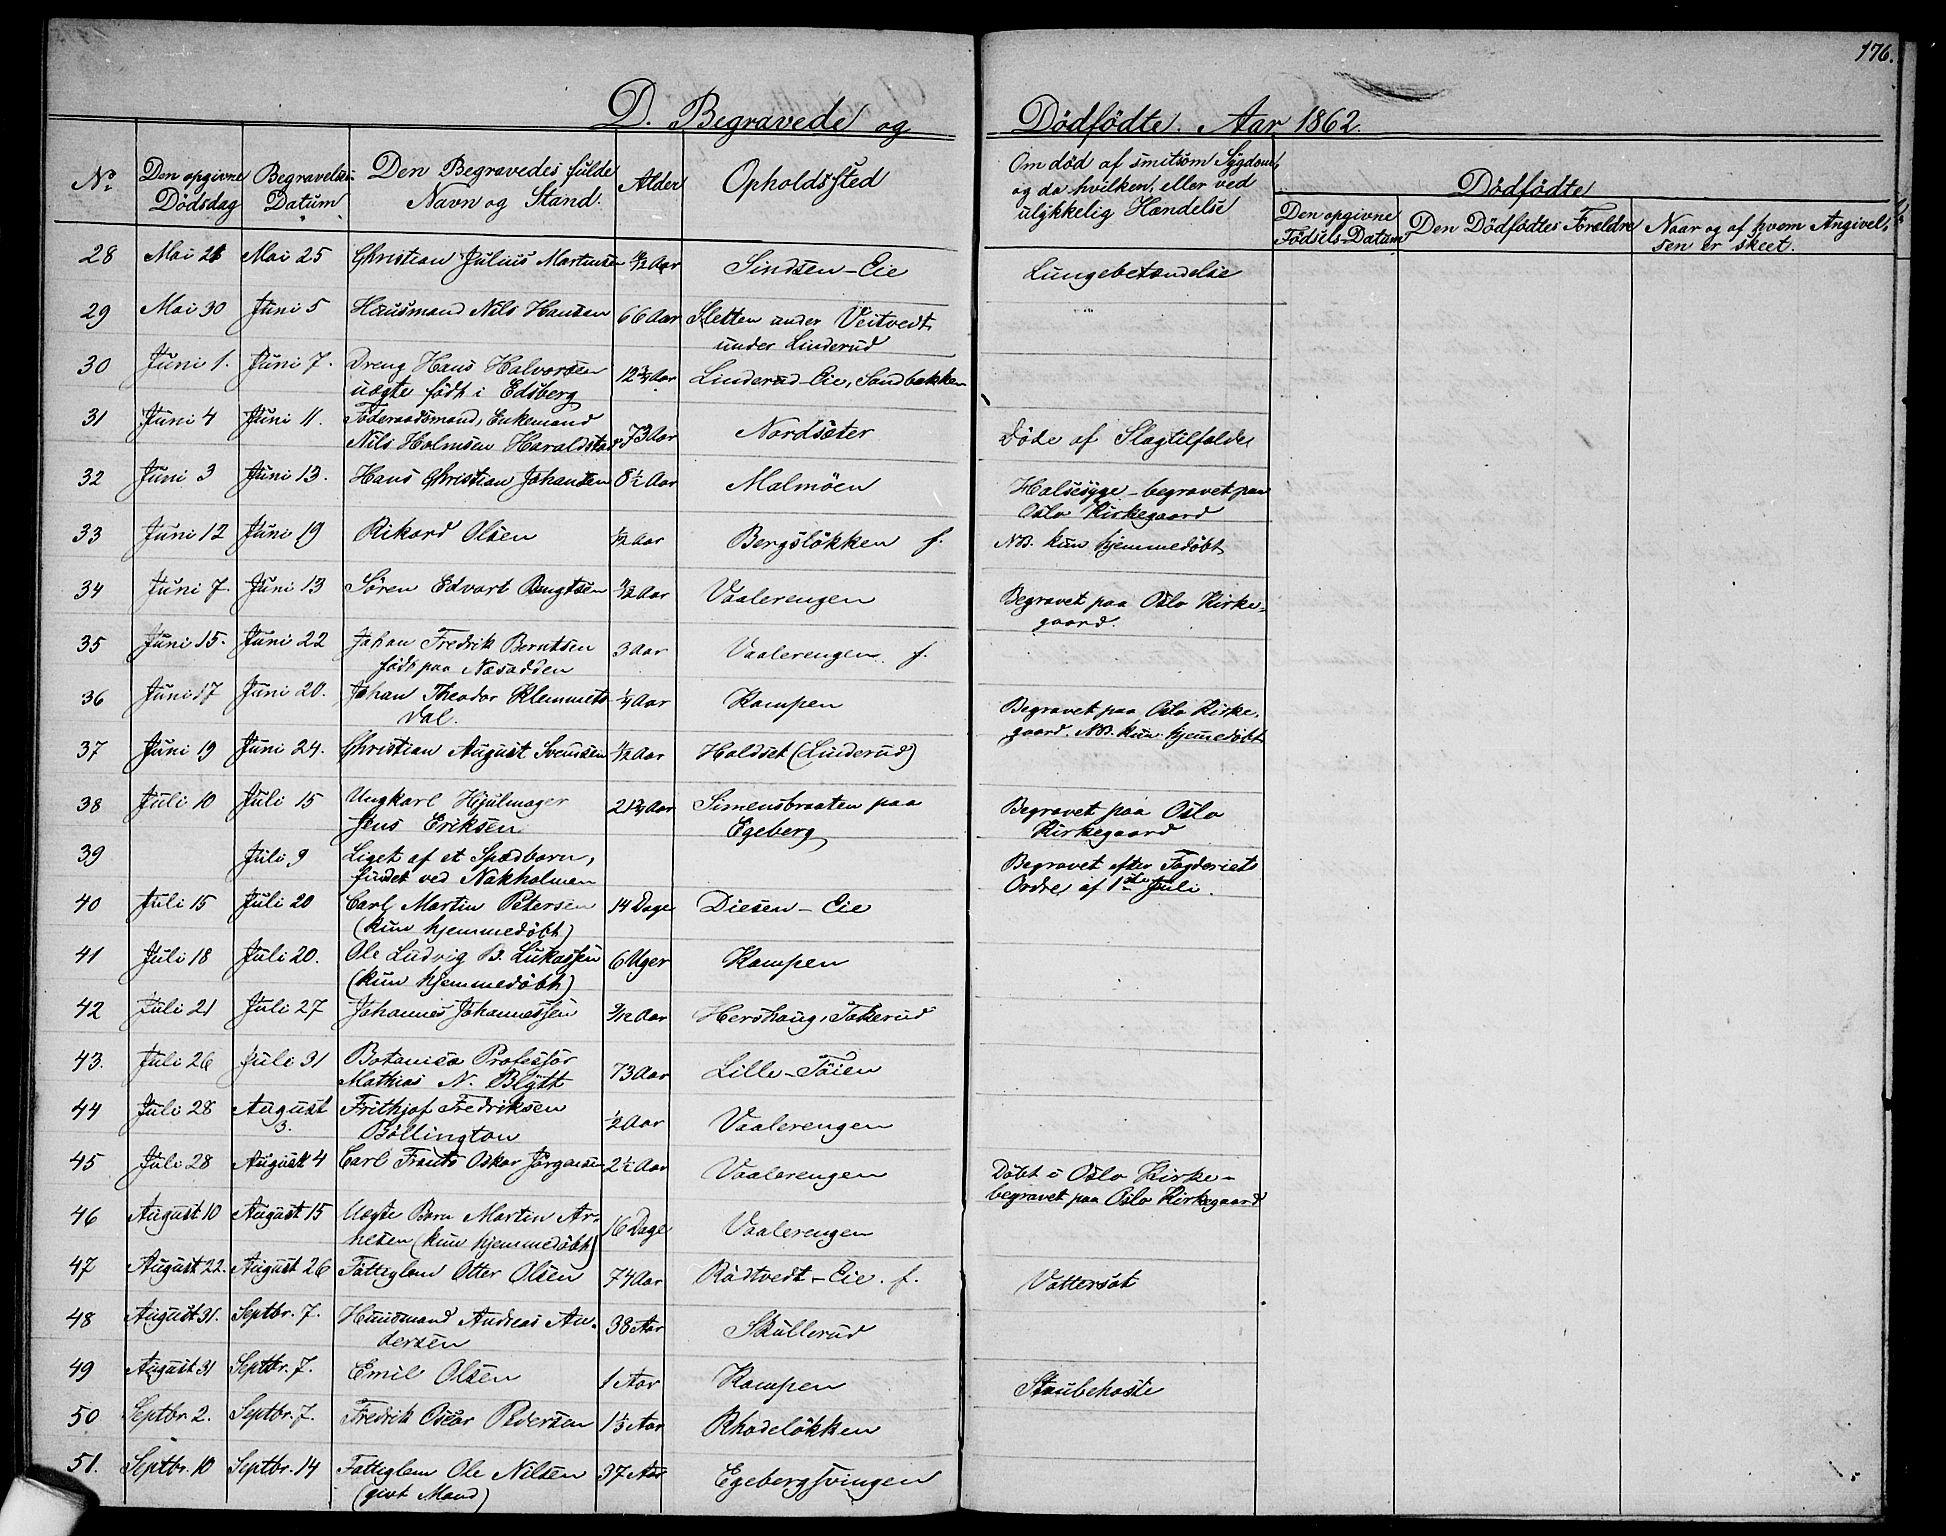 176.
D. Begravede og Dödfödte. Aar 1862.
No Den opgivne Dödsdag Begravelses Datum Den Begravedes fulde Navn og Stand. Alder Opholdssted Om död af smitsom Sygdom, og da hvilken, eller ved ulykkelig Hændelse Dödfödte
Den opgivne Födsels-Datum Den Dödfödtes Forældre Naar og af hvem Angivelsen er skeet.
28 Mai 21 Mai 25 Christian Julius Martinsen Aar Sindsen-Eie Lungebetændelse
29 Mai 30 Juni 5 Huusmand Nils Hansen 66 Aar Sletten under Veitvedt
under Linderud
30 Juni 1. Juni 7. Dreng Hans Halvorsen 12 3/4 Aar Linderud-Eie, Sandbakken
uægte födt i Edsberg
31 Juni 4 Juni 11. Föderaadsmand, Enkemand
Nils Holmsen Haraldstad 73 Aar Nordseter Döde af Slagtilfælde
32 Juni 3 Juni 13. Hans Christian Johansen 8½ Aar Malmöen Halsesyge - begravet paa
Oslo Kirkegaard
33 Juni 12 Juni 19 Rikard Olsen ½ Aar Bergslökken f. NB. kun hjemmedöbt
34 Juni 7. Juni 13 Sören Edvart Bengtsen Aar Vaalerengen Begravet paa Oslo Kirke-
gaard.
35 Juni 15. Juni 22 Johan Fredrik Berntsen 3 Aar Vaalerengen. f.
födt paa Næsodden
36 Juni 17 Juni 20. Johan Theodor Klemmets- ¼ Aar Kampen Begravet paa Oslo Kirke-
dal. gaard. NB. kun hjemedöbt
37 Juni 19 Juni 24. Christian August Svensen ½ Aar Holdset (Linderud)
38 Juli 10 Juli 15 Ungkarl Hjulmager 21 3/4 Aar Simensbraaten paa Begravet paa Oslo
Jens Eriksen Egeberg Kirkegaard
39 Juli 9 Liget af et Spædbarn, Begravet efter Fogderiets
fundet ved Nakholmen Ordre af 1ste Juli.
40 Juli 15 Juli 20 Carl Martin Petersen 14 Dage Diesen-Eie
(kun hjemmedöbt)
41 Juli 18 Juli 20. Ole Ludvig B. Lukassen 6 Uger Kampen
(kun hjemmedöbt)
42 Juli 21 Juli 27 Johannes Johannessen 9/12 Aar Hershaug, Tokerud
43. Juli 26 Juli 31 Botanices Professor
Mathias N. Blytt 73 Aar Lille-Töien
44 Juli 28 August Frithjof Fredriksen
3. Böllington ½ Aar Vaalerengen
45 Juli 28 August 4 Carl Frants Oskar Jörgensen 2½ Aar Vaalerengen Döbt i Oslo Kirke-
begravet paa Oslo Kirkegaard
46 August 10 August 15 Uægte Barn Martin Ar- 16 Dage Vaalerengen
nesen (kun hjemmedöbt)
47 August 22. August 26 Fattiglem Otter Olsen 74 Aar Rödtvedt-Eie. f. Vattersot
48 August 31. Septbr. 7. Huusmand Andreas An- 38 Aar Skullerud
dersen
49 August 31 Septbr. 7. Emil Olsen 1 Aar Kampen Stubehoste
50 Septbr. 2. Septbr. 7. Fredrik Oscar Pedersen 1⅓ Aar Rhodelökken
51. Septbr. 10 Septbr. 14 Fattiglem Ole Nilsen 37 Aar Egebergsvingen
(givt Mand)